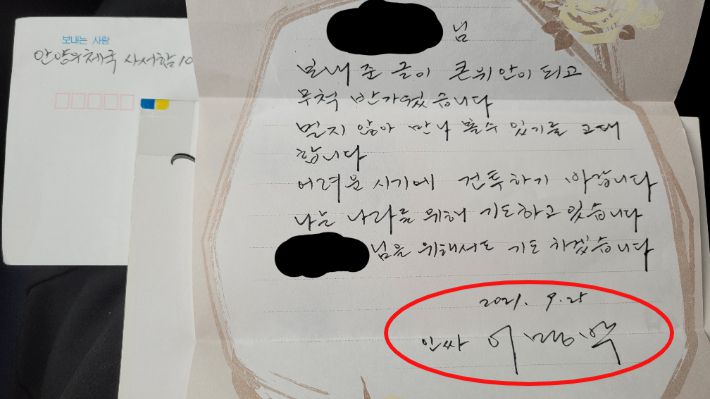 보내는 사람
안양우체국 사서함 10
님
보내 준 글이 큰위안이 되고
무척 반가웠습니다
멀지 않아 만나 볼수 있기를 고대
합니다
어려운 시기에 건투하기 바랍니다
나는 나라를 위해 기도하고 있습니다
님을 위해서도 기도 하겠습니다
2021. 9. 25
이명박